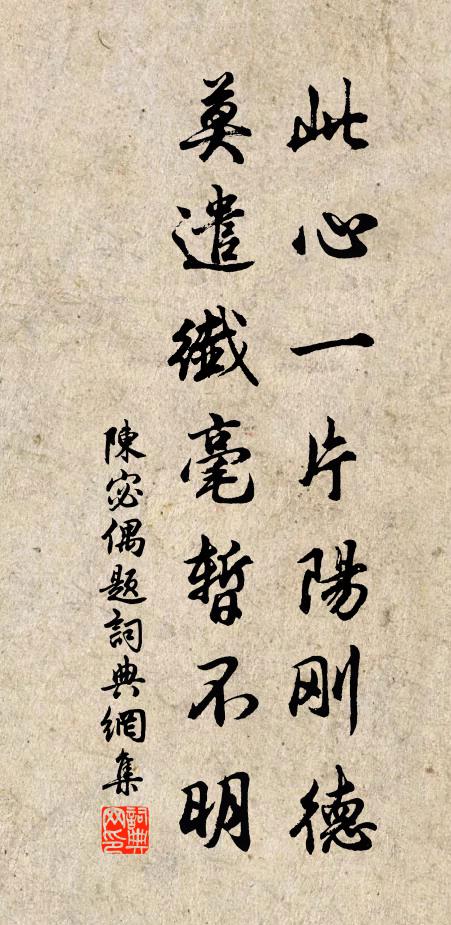 此心一片陽刚德
莫遣纖毫暫不明
陳宓偶題詞典網集
詞典网印